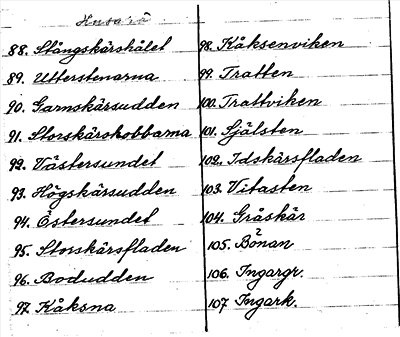 88. Stångskärshålet
89. Utterstenarna
90. Garnskärsudden
91. Storskärskobbarna
92. Västersundet
93. Högskärsudden
94. Östersundet
95. Storskärsfladen
96. Bodudden
97. Kåksna
98. Kåksenviken
99. Tratten
100. Trattviken
101. Själsten
102. Idskärsfladen
103. Vitasten
104. Gråskär
105. Bönan
106. Ingargr.
107 Ingark.